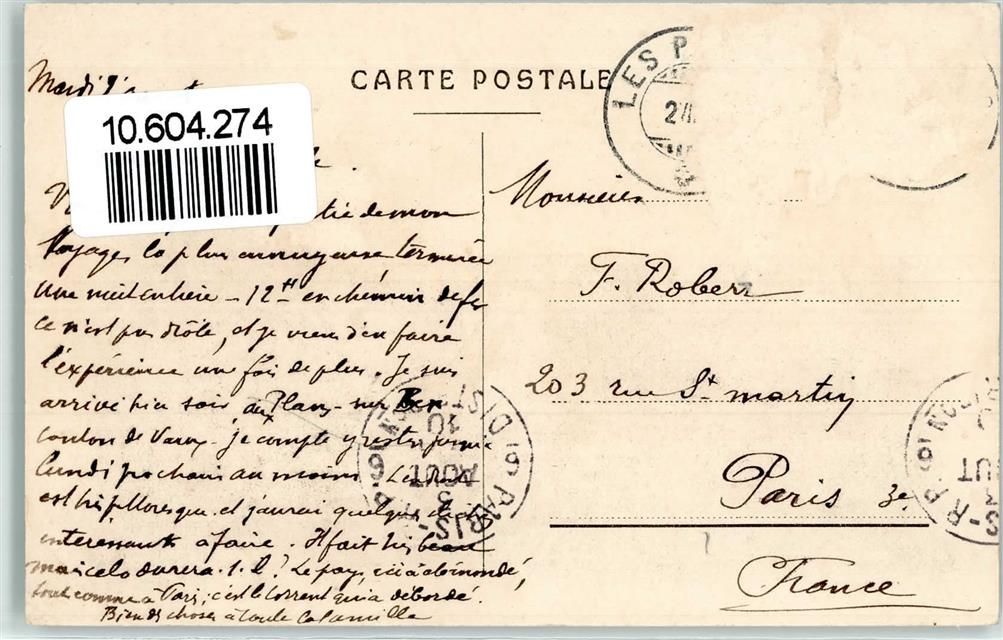 CARTE POSTALE
LES P
Mardi
10.604.274
de mon
Voyage, la plus ennuyeuse terminée
une nuit entière - 12 H en chemin de fer
ce n'est pas drôle, et je viens d'en faire
l'expérience une fois de plus. Je suis
arrivé hier soir aux Plans-sur-Bex
canton de Vaud - je compte y rester jusqu'à
Lundi prochain au moins. L'endroit
est très pittoresque, et j'aurai quelques
intéressants à faire. Il fait très beau
mais cela durera-t-il? Le pays ici a été inondé,
tout comme à Paris; c'est le torrent qui a débordé.
Bien des choses à toute la famille
Monsieur
F. Robert
203 rue St martin
Paris 3e
France
PARIS
DIST
AOUT